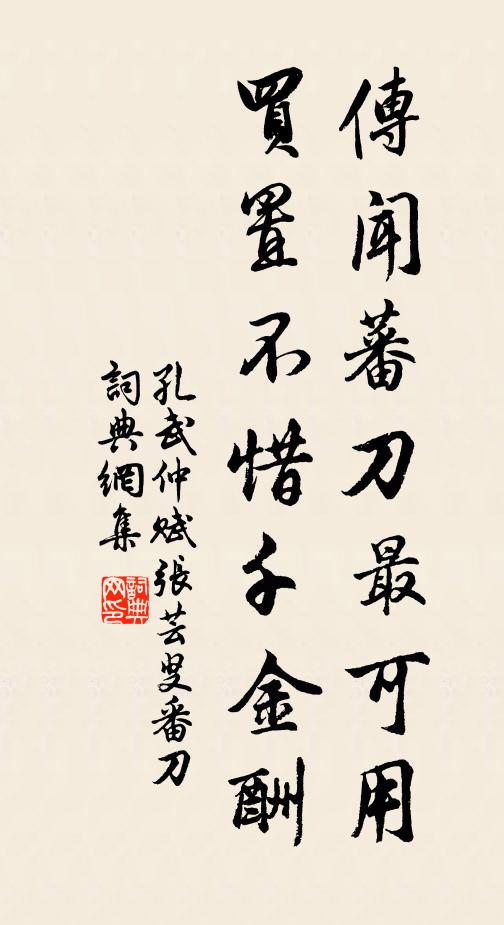 傳聞蕃刀最可用
買置不惜千金酬
孔武仲賦張芸叟番刀
詞典網集
詞典網印